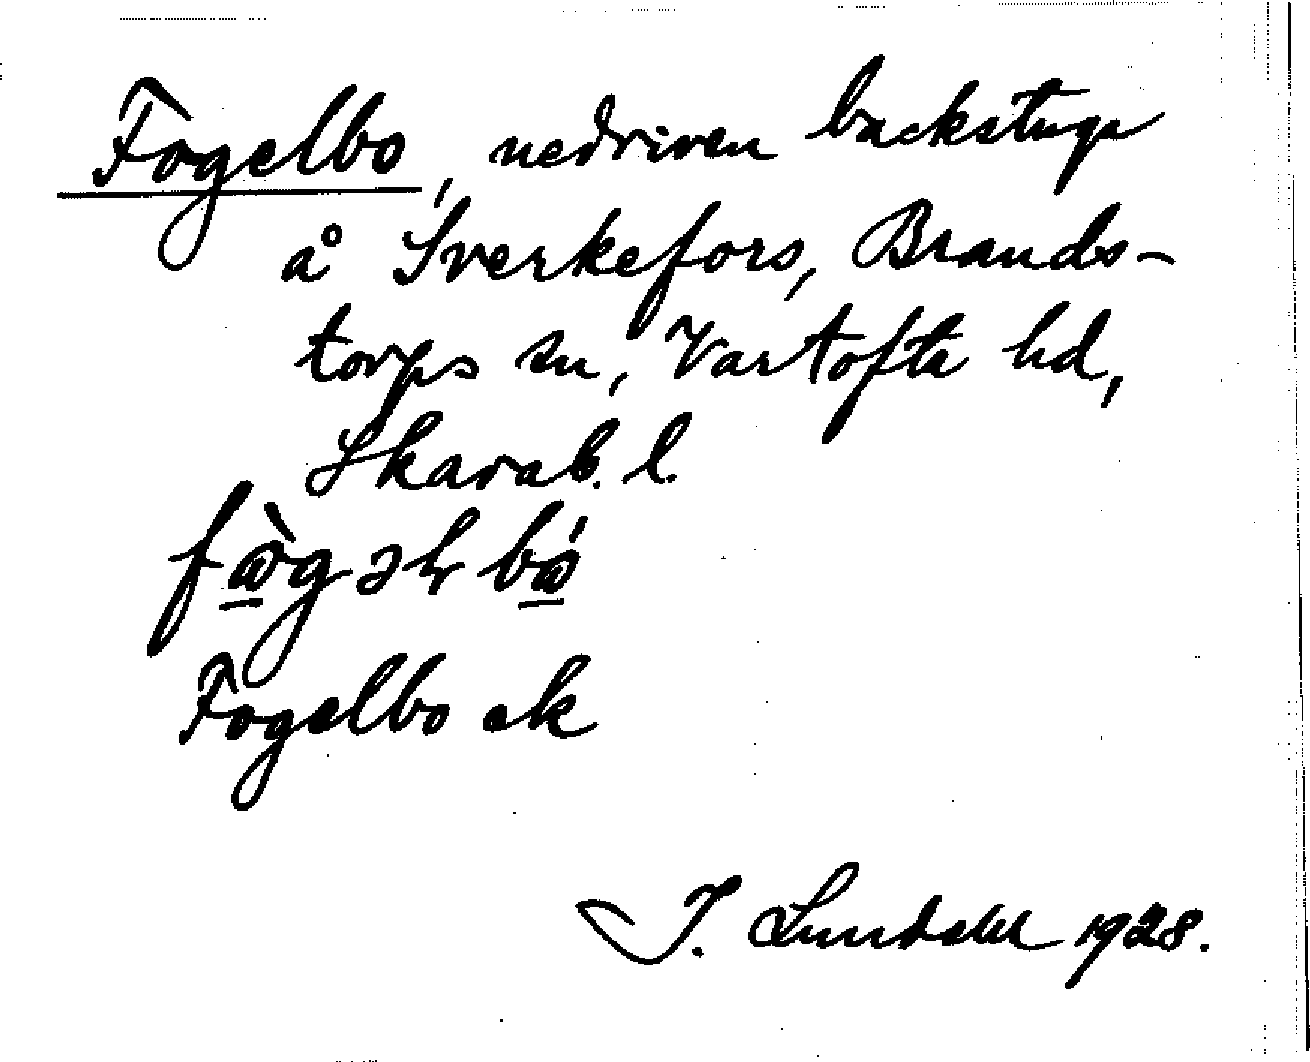 Fogelbo, nedriven backstuga
å Sverkefors, Brands-
torps sn, Vartofta hd,
Skarab. l.
Fogelbo ek
J. Lundahl 1928.